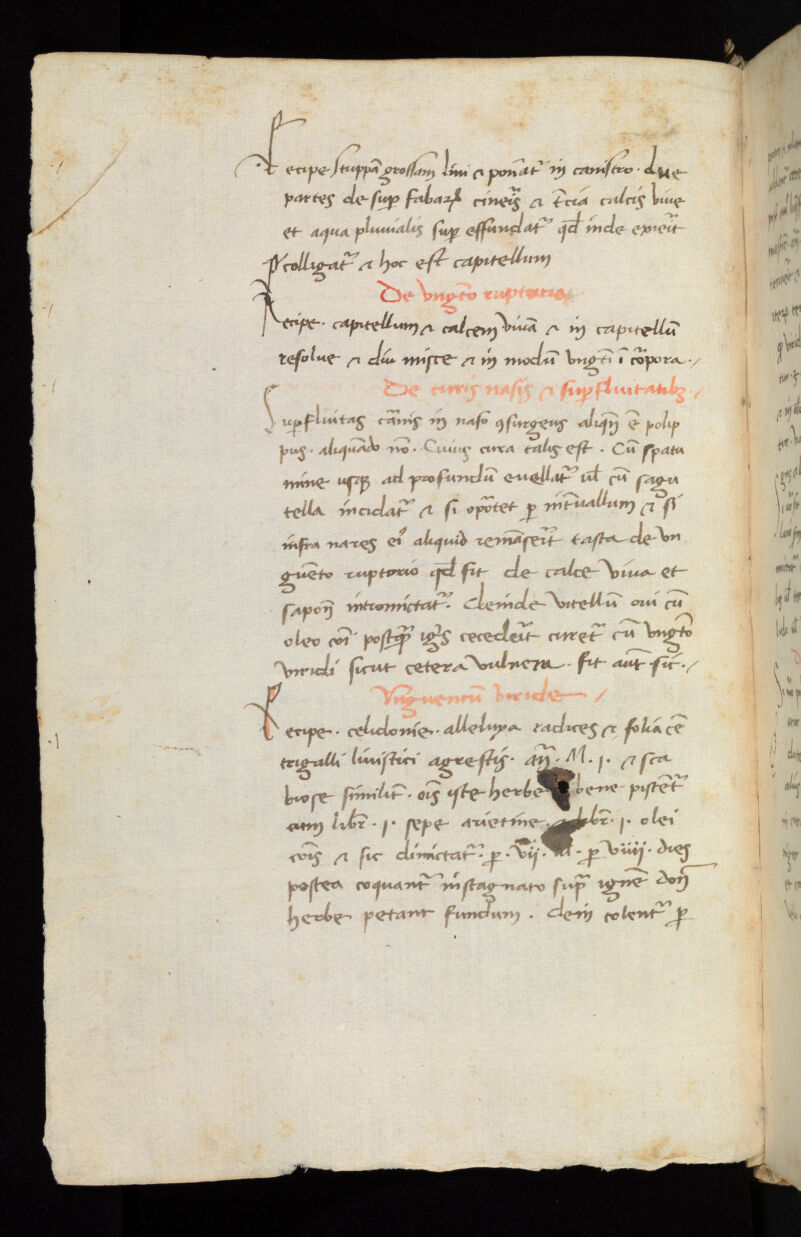 Recipe stuppā grossam lini ⁊ ponat᷑ in canistro · due
partes de sup̲ fabaꝝ cineris ⁊ t̄cia calcis vive
et aqua pluvialis sup̲ effundat᷑ qd̄ inde exierit
colligat᷑ ⁊ hoc est capitellum
De vngēto ruptorio
Recipe · capitellum ⁊ calcem vivā ⁊ in capitellū
resolve ⁊ diu misce ⁊ in modū vngēti ī cōpora ·
De curis nasis ⁊ sup̲fluitatibꝫ ·
Sup̲fluitas carnis in naso ꝯsurgens aliqn̄ ē polip
pus · aliquando nō · Cuius cura talis est · Cū spatu
mine usqꝫ ad profundū evellat᷑ ul̄ cū sagu
tella incidat᷑ ⁊ si oportet p̲ intervallum ⁊ si
infra nares eiꝰ aliquid remāserit tasta de vn
guēto ruptorio qd̄ fit de calce viva et
sapon̄ intromictat᷑ · deinde vitellū ovi cū
oleo cōi postqᷓ ignis cecederit curet᷑ cū vngēto
viridi sicut cetera vulnera · fit aūt sic ·
Vnguentū viride
Recipe · celidonie · alleluya radices ⁊ folia cē
trigalli livistici agrestis · an̄ · M · i · ⁊ sca
biose similit̄ · oīs iste herbe bene pistent᷑
cum libr̄ · i · sepe arietine · ⁊ libr̄ · i · olei
cōis ⁊ sic dimictat᷑ · p̲ · vii · p̲ viiii · dies
postea coquant᷑ in stagnato supᷓ ignē don̄
herbe petant fundum · dein colent᷑ p̲